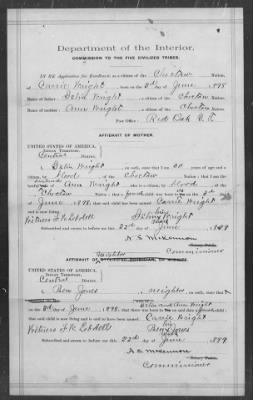 Department of the Interior,
COMMISSION TO THE FIVE CIVILIZED TRIBES.
IN RE Application for Enrollment, as a citizen of the Choctaw Nation,
of Carrie Wright, born on the 5th day of June, 1898
Name of Father: Selin Wright a citizen of the Choctaw Nation.
Name of Mother: Ann Wright a citizen of the Choctaw Nation.
Post-office Red Oak I.T.
AFFIDAVIT OF MOTHER.
UNITED STATES OF AMERICA,
INDIAN TERRITORY,
Central District.
I, Selin Wright, on oath state that I am years of age and a
citizen, by blood, of the Choctaw Nation;
Ann Wright, who is a citizen, by blood, of the
Choctaw Nation; that a female child was on the 5th day
of June, 1898; that said child has been named Carrie Wright
Witness
Selin Wright
his
mark
Subscribed and sworn to before me this 22nd day of June, 1899
A. S. McKennon
Commissioner
AFFIDAVIT OF
UNITED STATES OF AMERICA,
INDIAN TERRITORY,
Central District.
I, Ben Jones, a neighbor, on oath state that
Selin and Ann Wright
on the 5th day of June, 1898;
that said child is now living and is said to have been named Carrie Wright
Witness
his
Ben Jones
mark
Subscribed and sworn to before me this 22nd day of June, 1899
A. S. McKennon
Commissioner